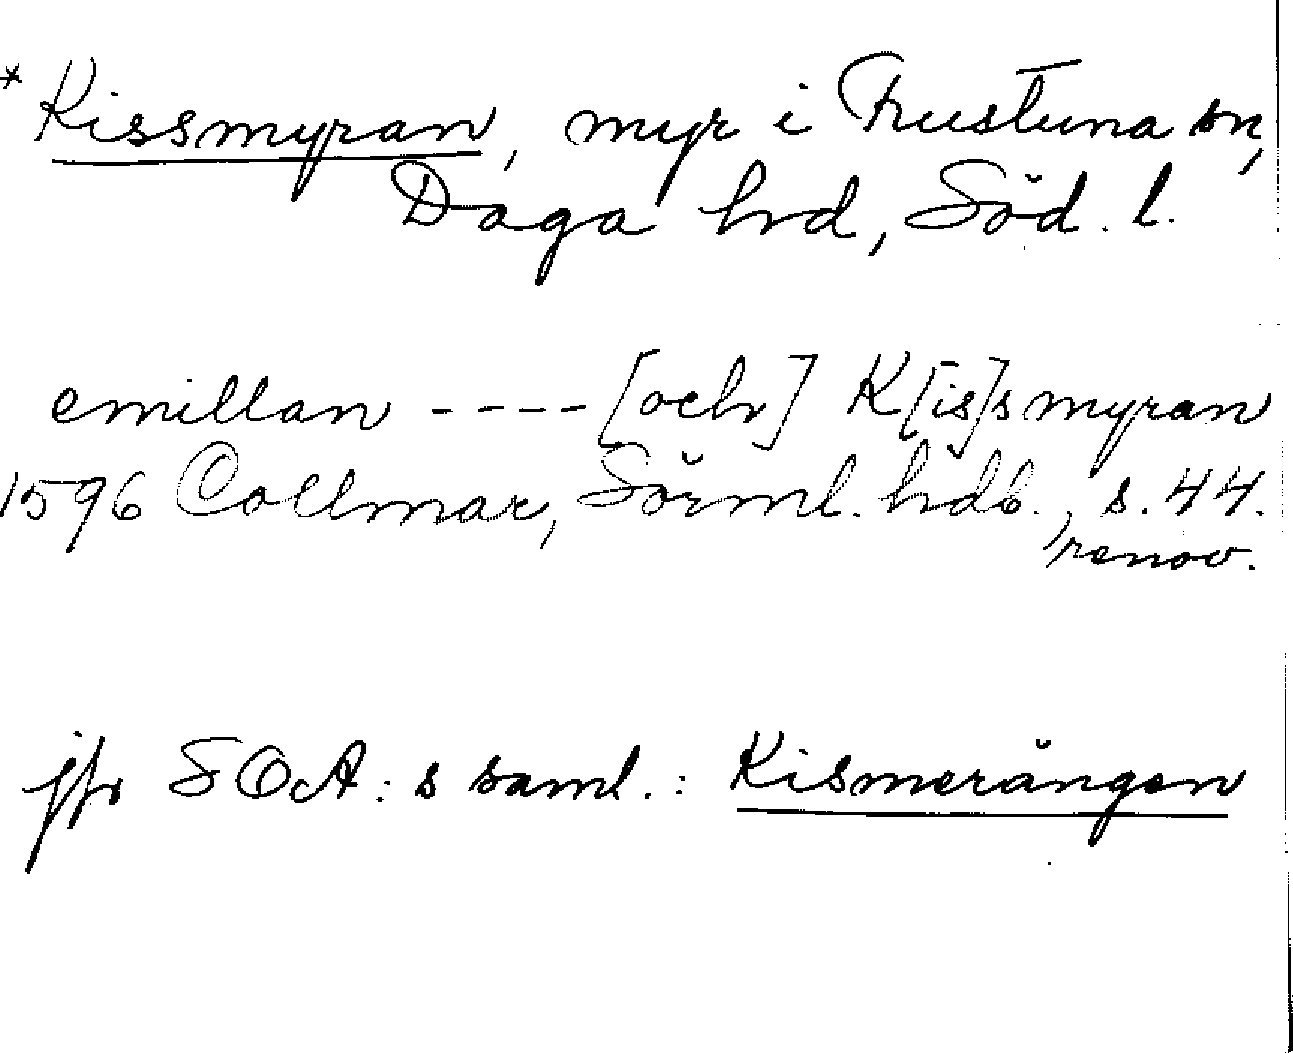 *Kissmyran, myr i Frustuna sn,
Daga hrd, Söd. l.
emillan ---- [och] K[is]smyran
1596 Collmar, Sörml. hdb., s. 44.
renov.
jfr SOA:s saml.: Kismerängen